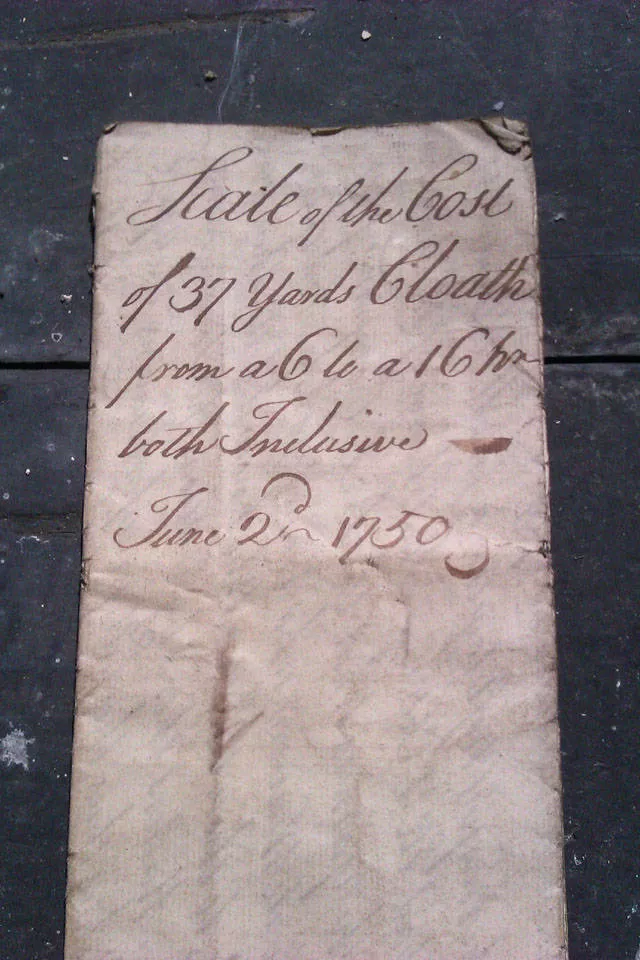 Scale of the Cost
of 37 Yards Cloath
from a 6 to a 16 hn
both Inclusive
June 2d 1750